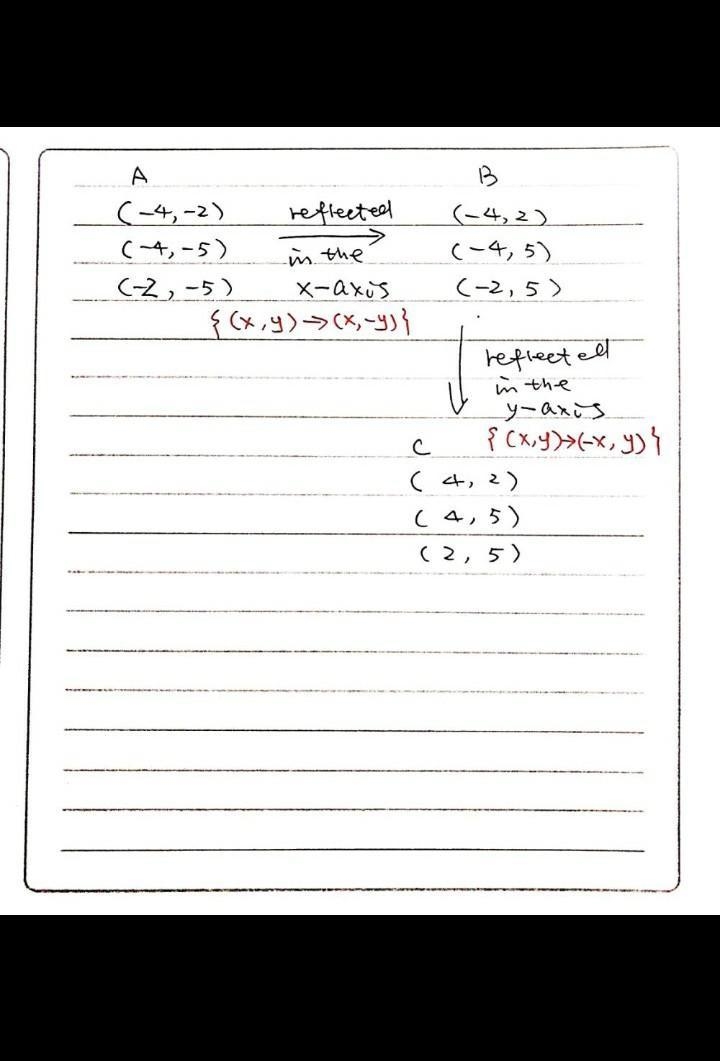 A B
(-4,-2) reflected (-4,2)
(-4,-5) in the (-4,5)
(-2,-5) x-axis (-2,5)
{(x,y)→(x,-y)}
reflected
in the
y-axis
C {(x,y)→(-x,y)}
(4,2)
(4,5)
(2,5)